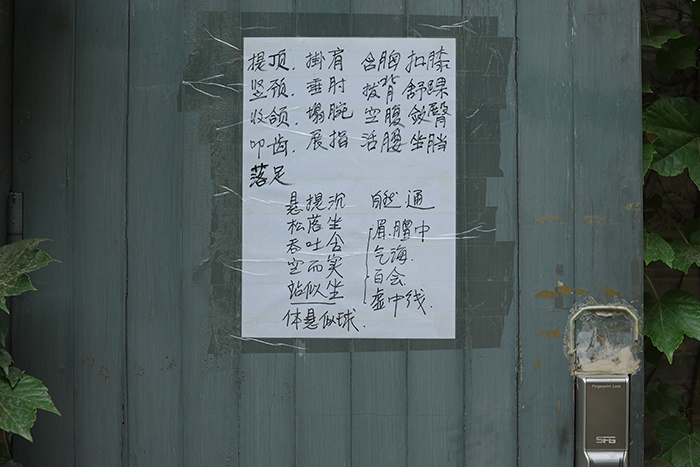 提顶. 掛肩 含胸 扣膝
竖颈. 垂肘 拔背 舒踝
收颌. 塌腕 空腹 敛臀
叩齿. 展指 活腰 坐胯
落足
悬提沉 自然通
松落坐 眉膻中
吞吐含 气海.
空而实 百会
站似坐 虚中线.
体悬似球.
Fingerprint Lock